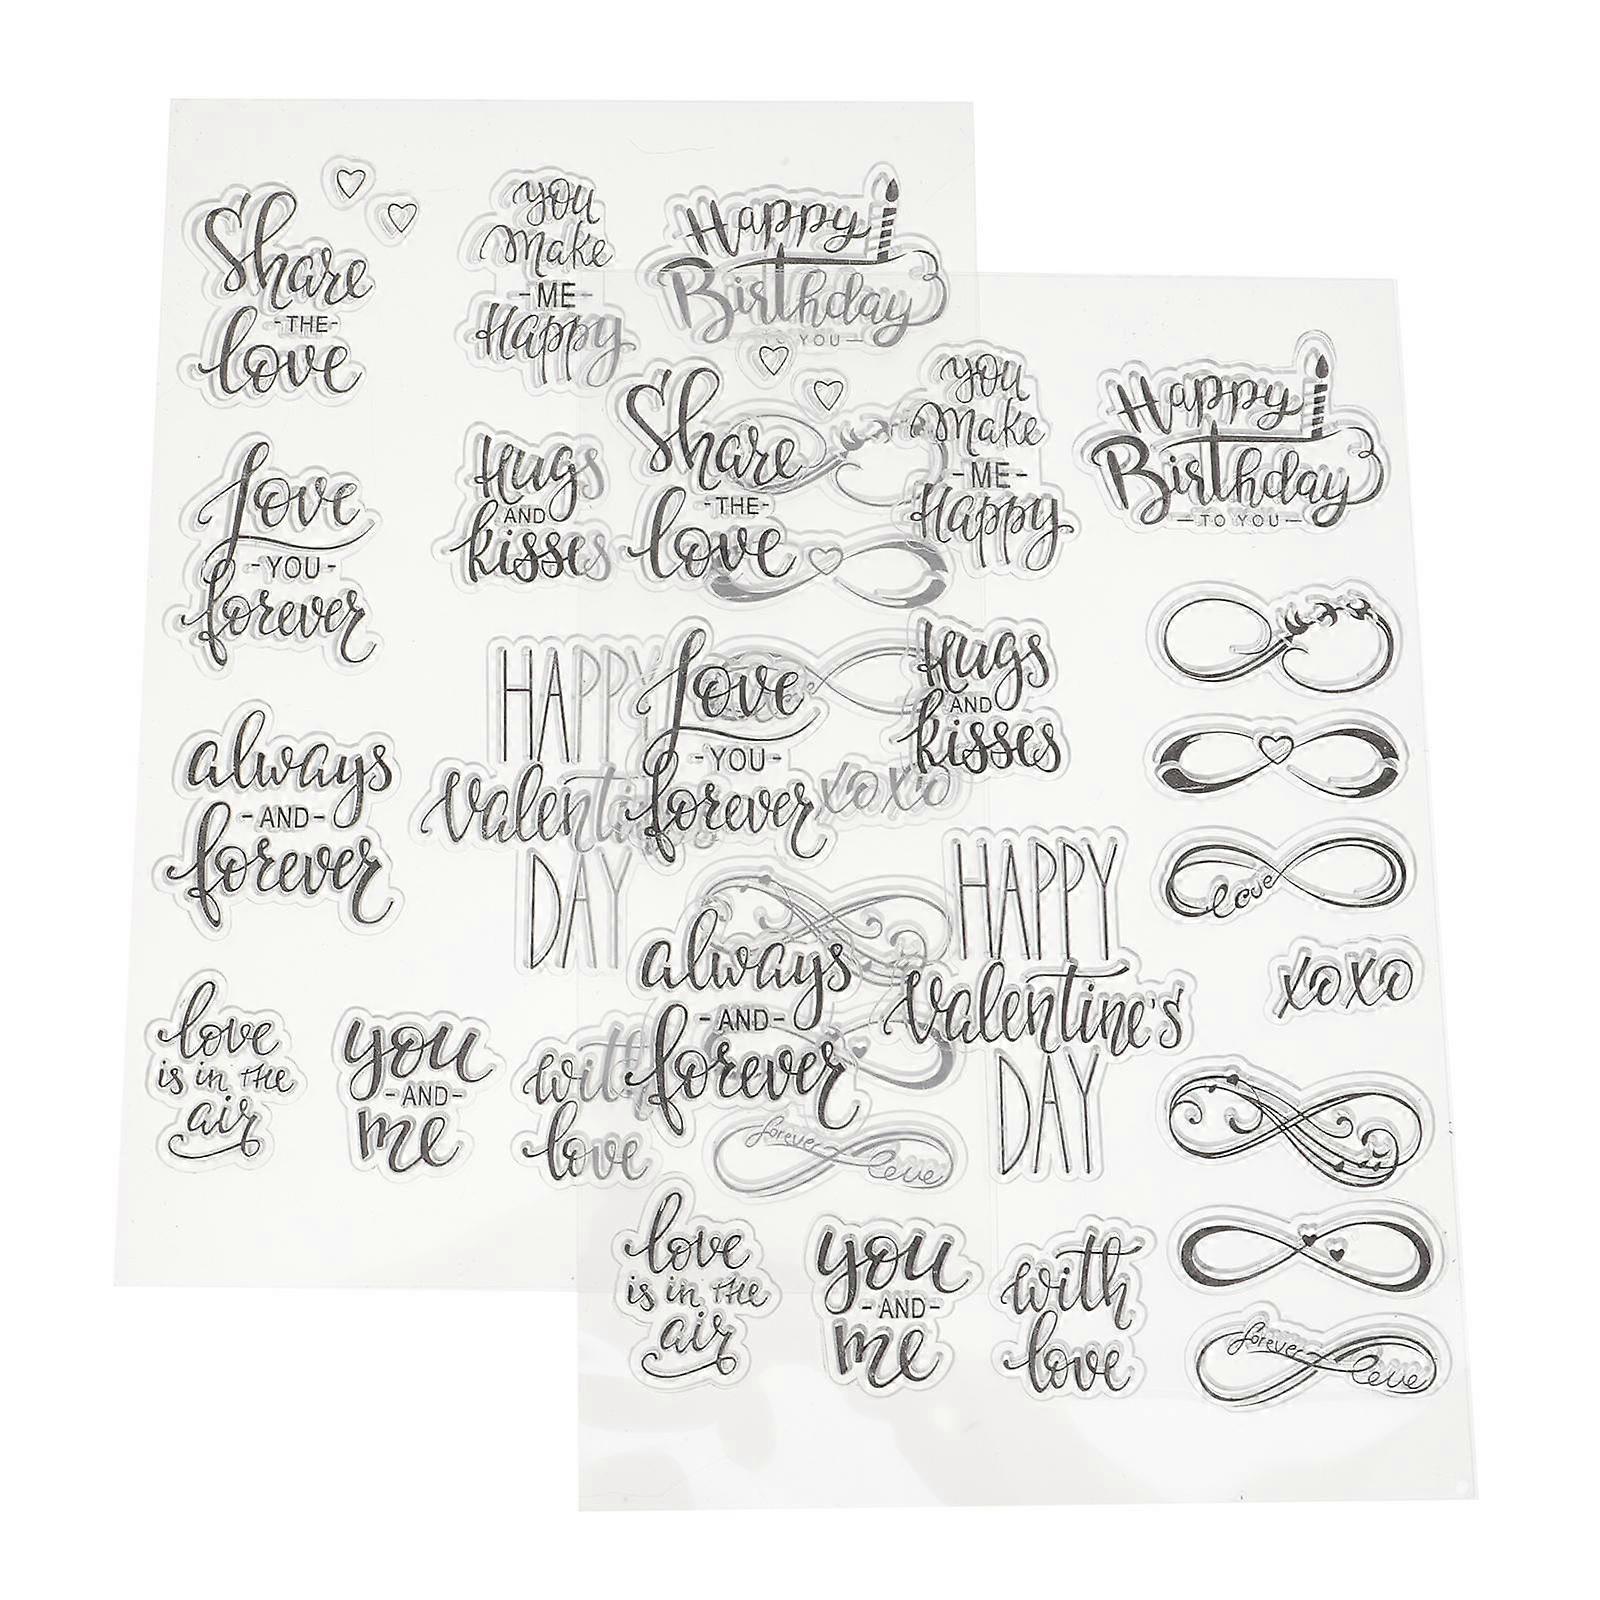 Share
-THE-
love
you
Make
-ME-
Happy
Happy
Birthday
TO YOU—
love
-YOU-
forever
Hugs
AND
kisses
always
-AND-
forever
HAPPY
Valenti
DAY
xoxo
love
is in the
air
you
-AND-
me
with
love
forever love
Share
-THE-
love
you
Make
-ME-
Happy
Happy
Birthday
—TO YOU—
love
-YOU-
forever
Hugs
AND
kisses
love
xoxo
always
-AND-
forever
HAPPY
Valentine's
DAY
love
is in the
air
you
-AND-
me
with
love
forever love